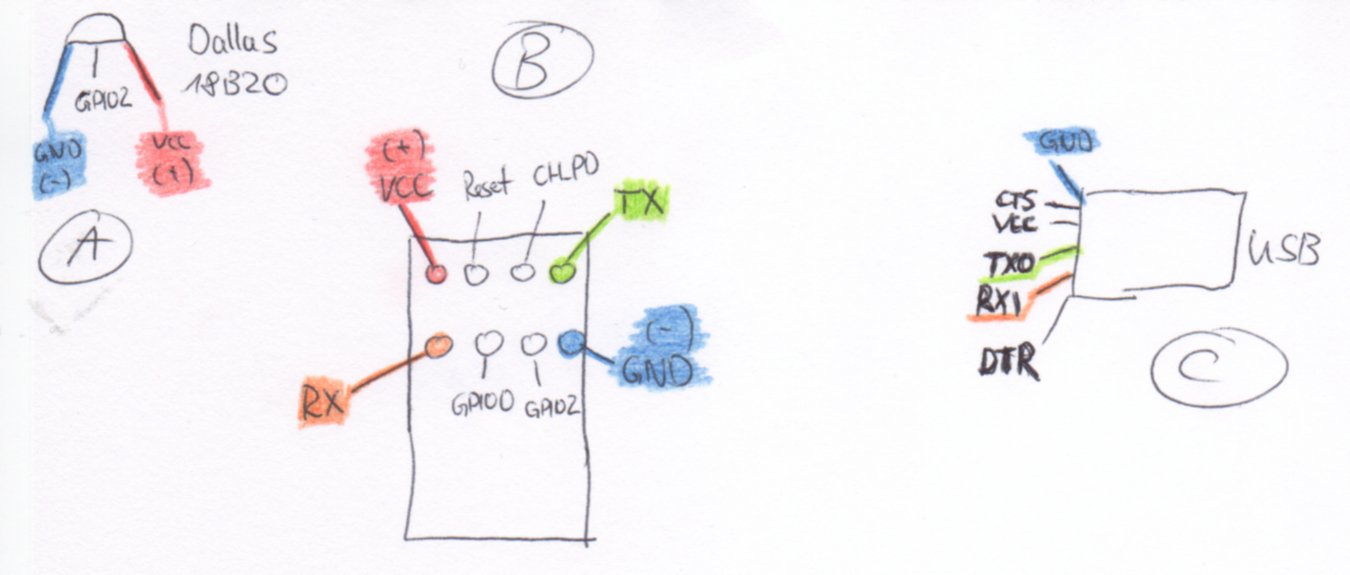 Dallas
18B20
GPIO2
GND
(-)
VCC
(+)
A
B
(+)
VCC
Reset
CH_PD
TX
RX
GPIO0
GPIO2
(-)
GND
GND
CTS
VCC
TXO
RXI
DTR
USB
C